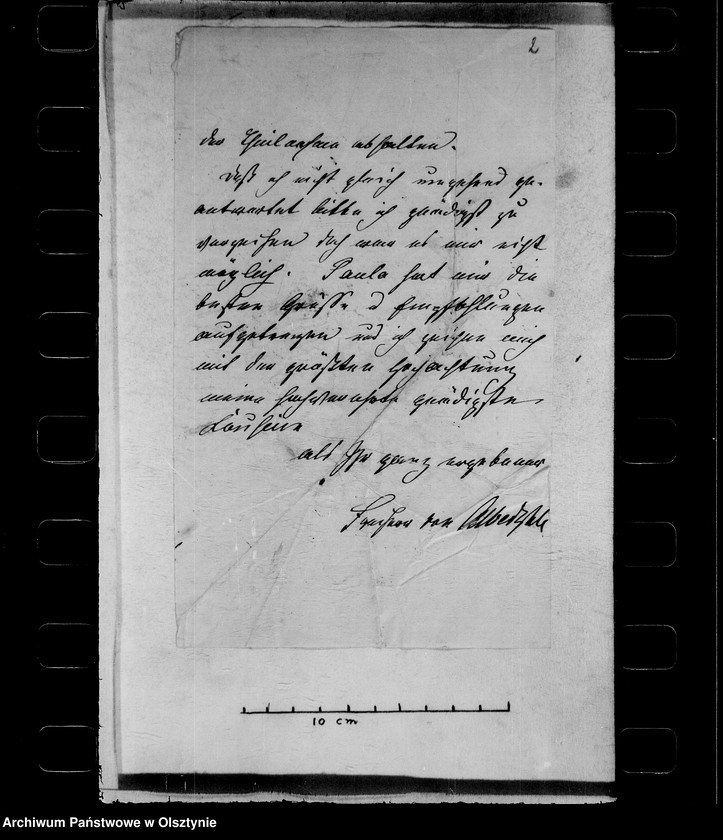 2
der Theilnahme abhalten.
Daß ich nicht gleich umgehend ge-
antwortet bitte ich gnädigst zu
verzeihen doch war es mir nicht
möglich. Paula hat mir die
besten Grüße u Empfehlungen
aufgetragen und ich zeichne mich
mit der größten Hochachtung
meine hochverehrte gnädigste
Cousine
als Ihr ganz ergebener
Freiherr von
10 cm
Archiwum Państwowe w Olsztynie